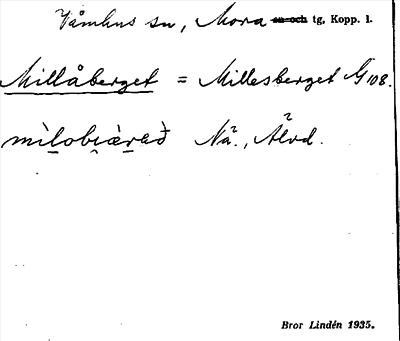 Våmhus sn, Mora sn och tg, Kopp. l.
Millåberget = Millesberget G 108.
mìlobi̯æ̀rað Nä., Älvd.
Bror Lindén 1935.